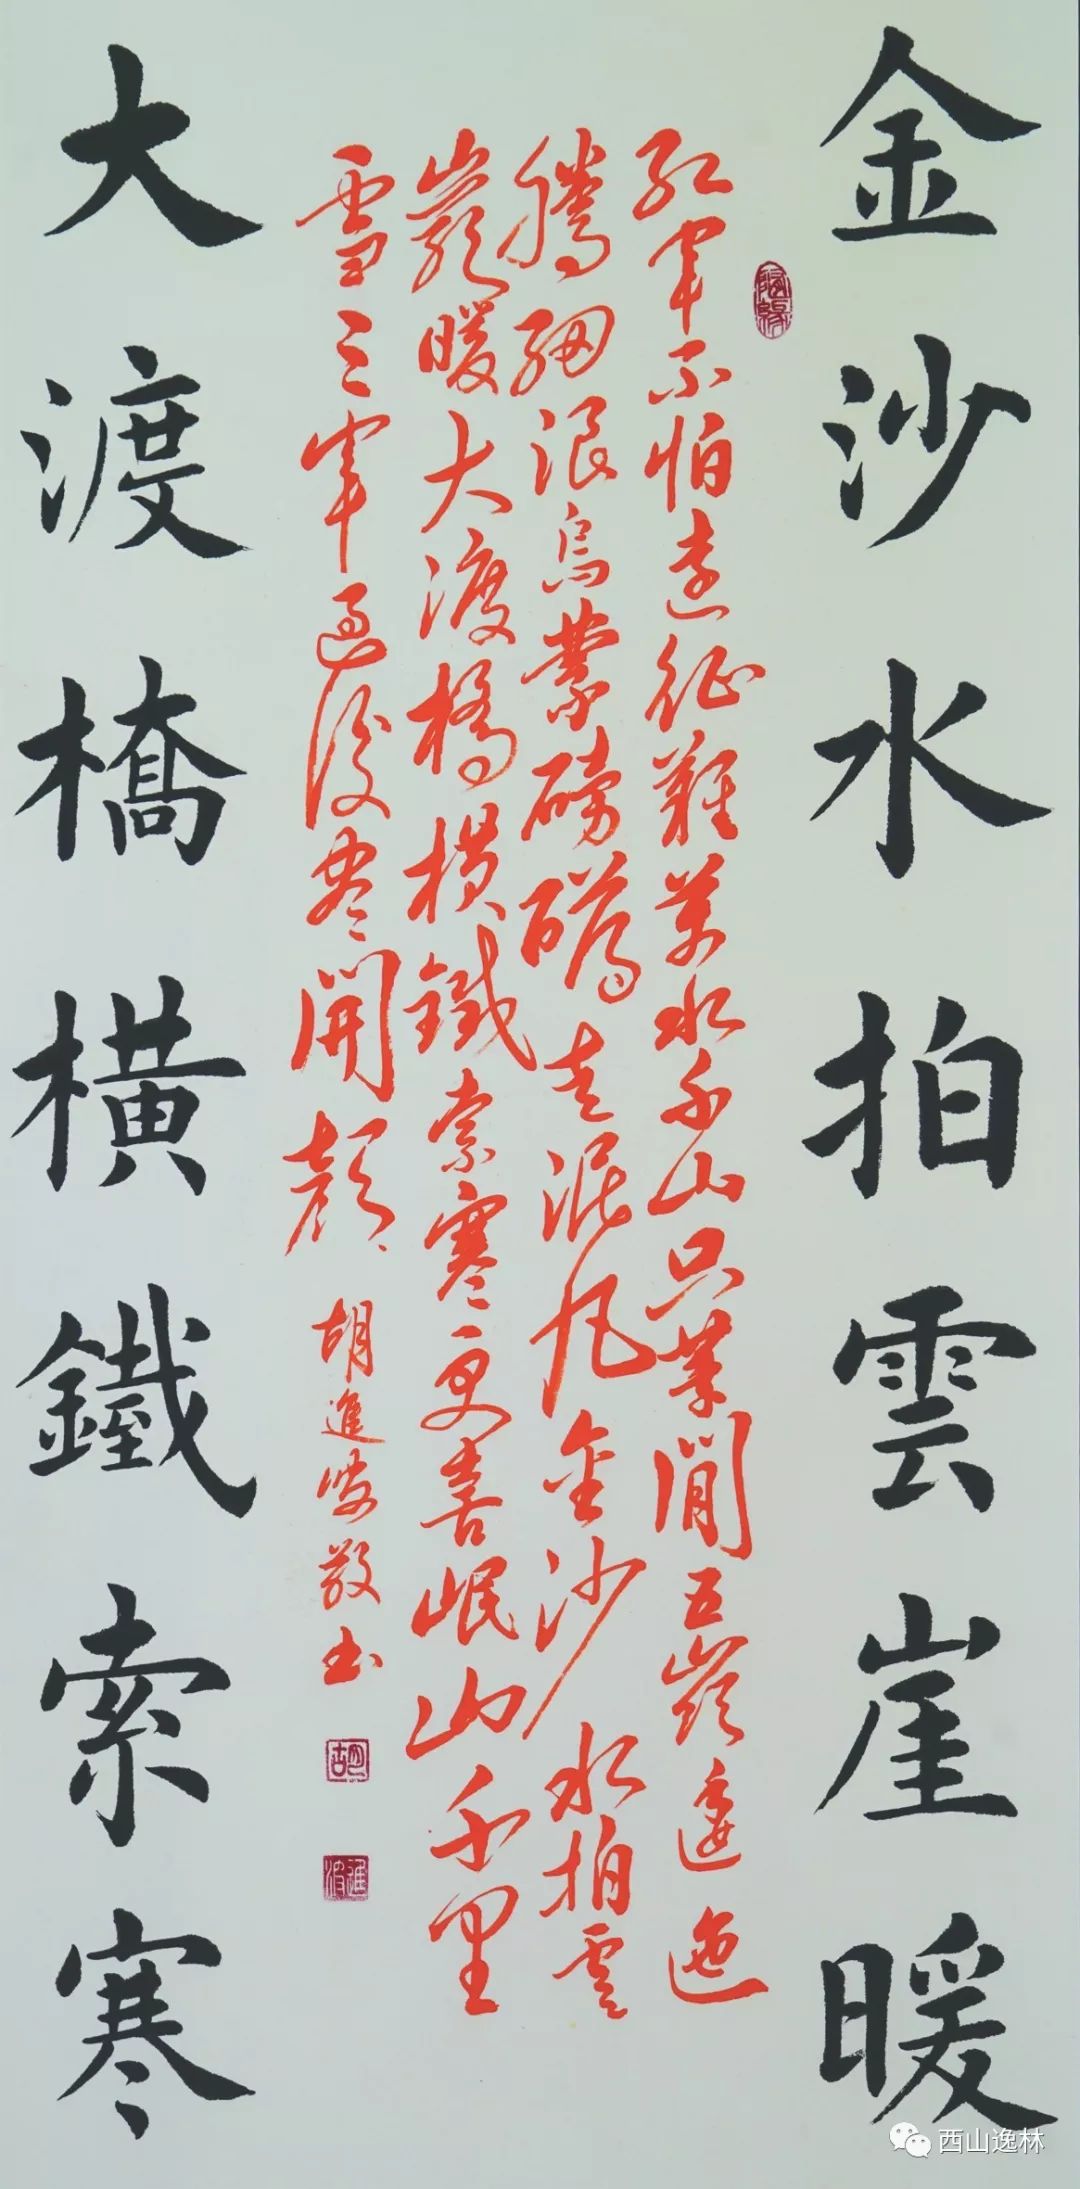 金沙水拍雲崖暖
紅軍不怕遠征難萬水千山只等閒五嶺逶迤
騰細浪烏蒙磅礴走泥丸金沙水拍雲
巖暖大渡橋橫鐵索寒更喜岷山千里
雪三軍過後盡開顏
胡進波敬書
胡
進波
大渡橋橫鐵索寒
西山逸林